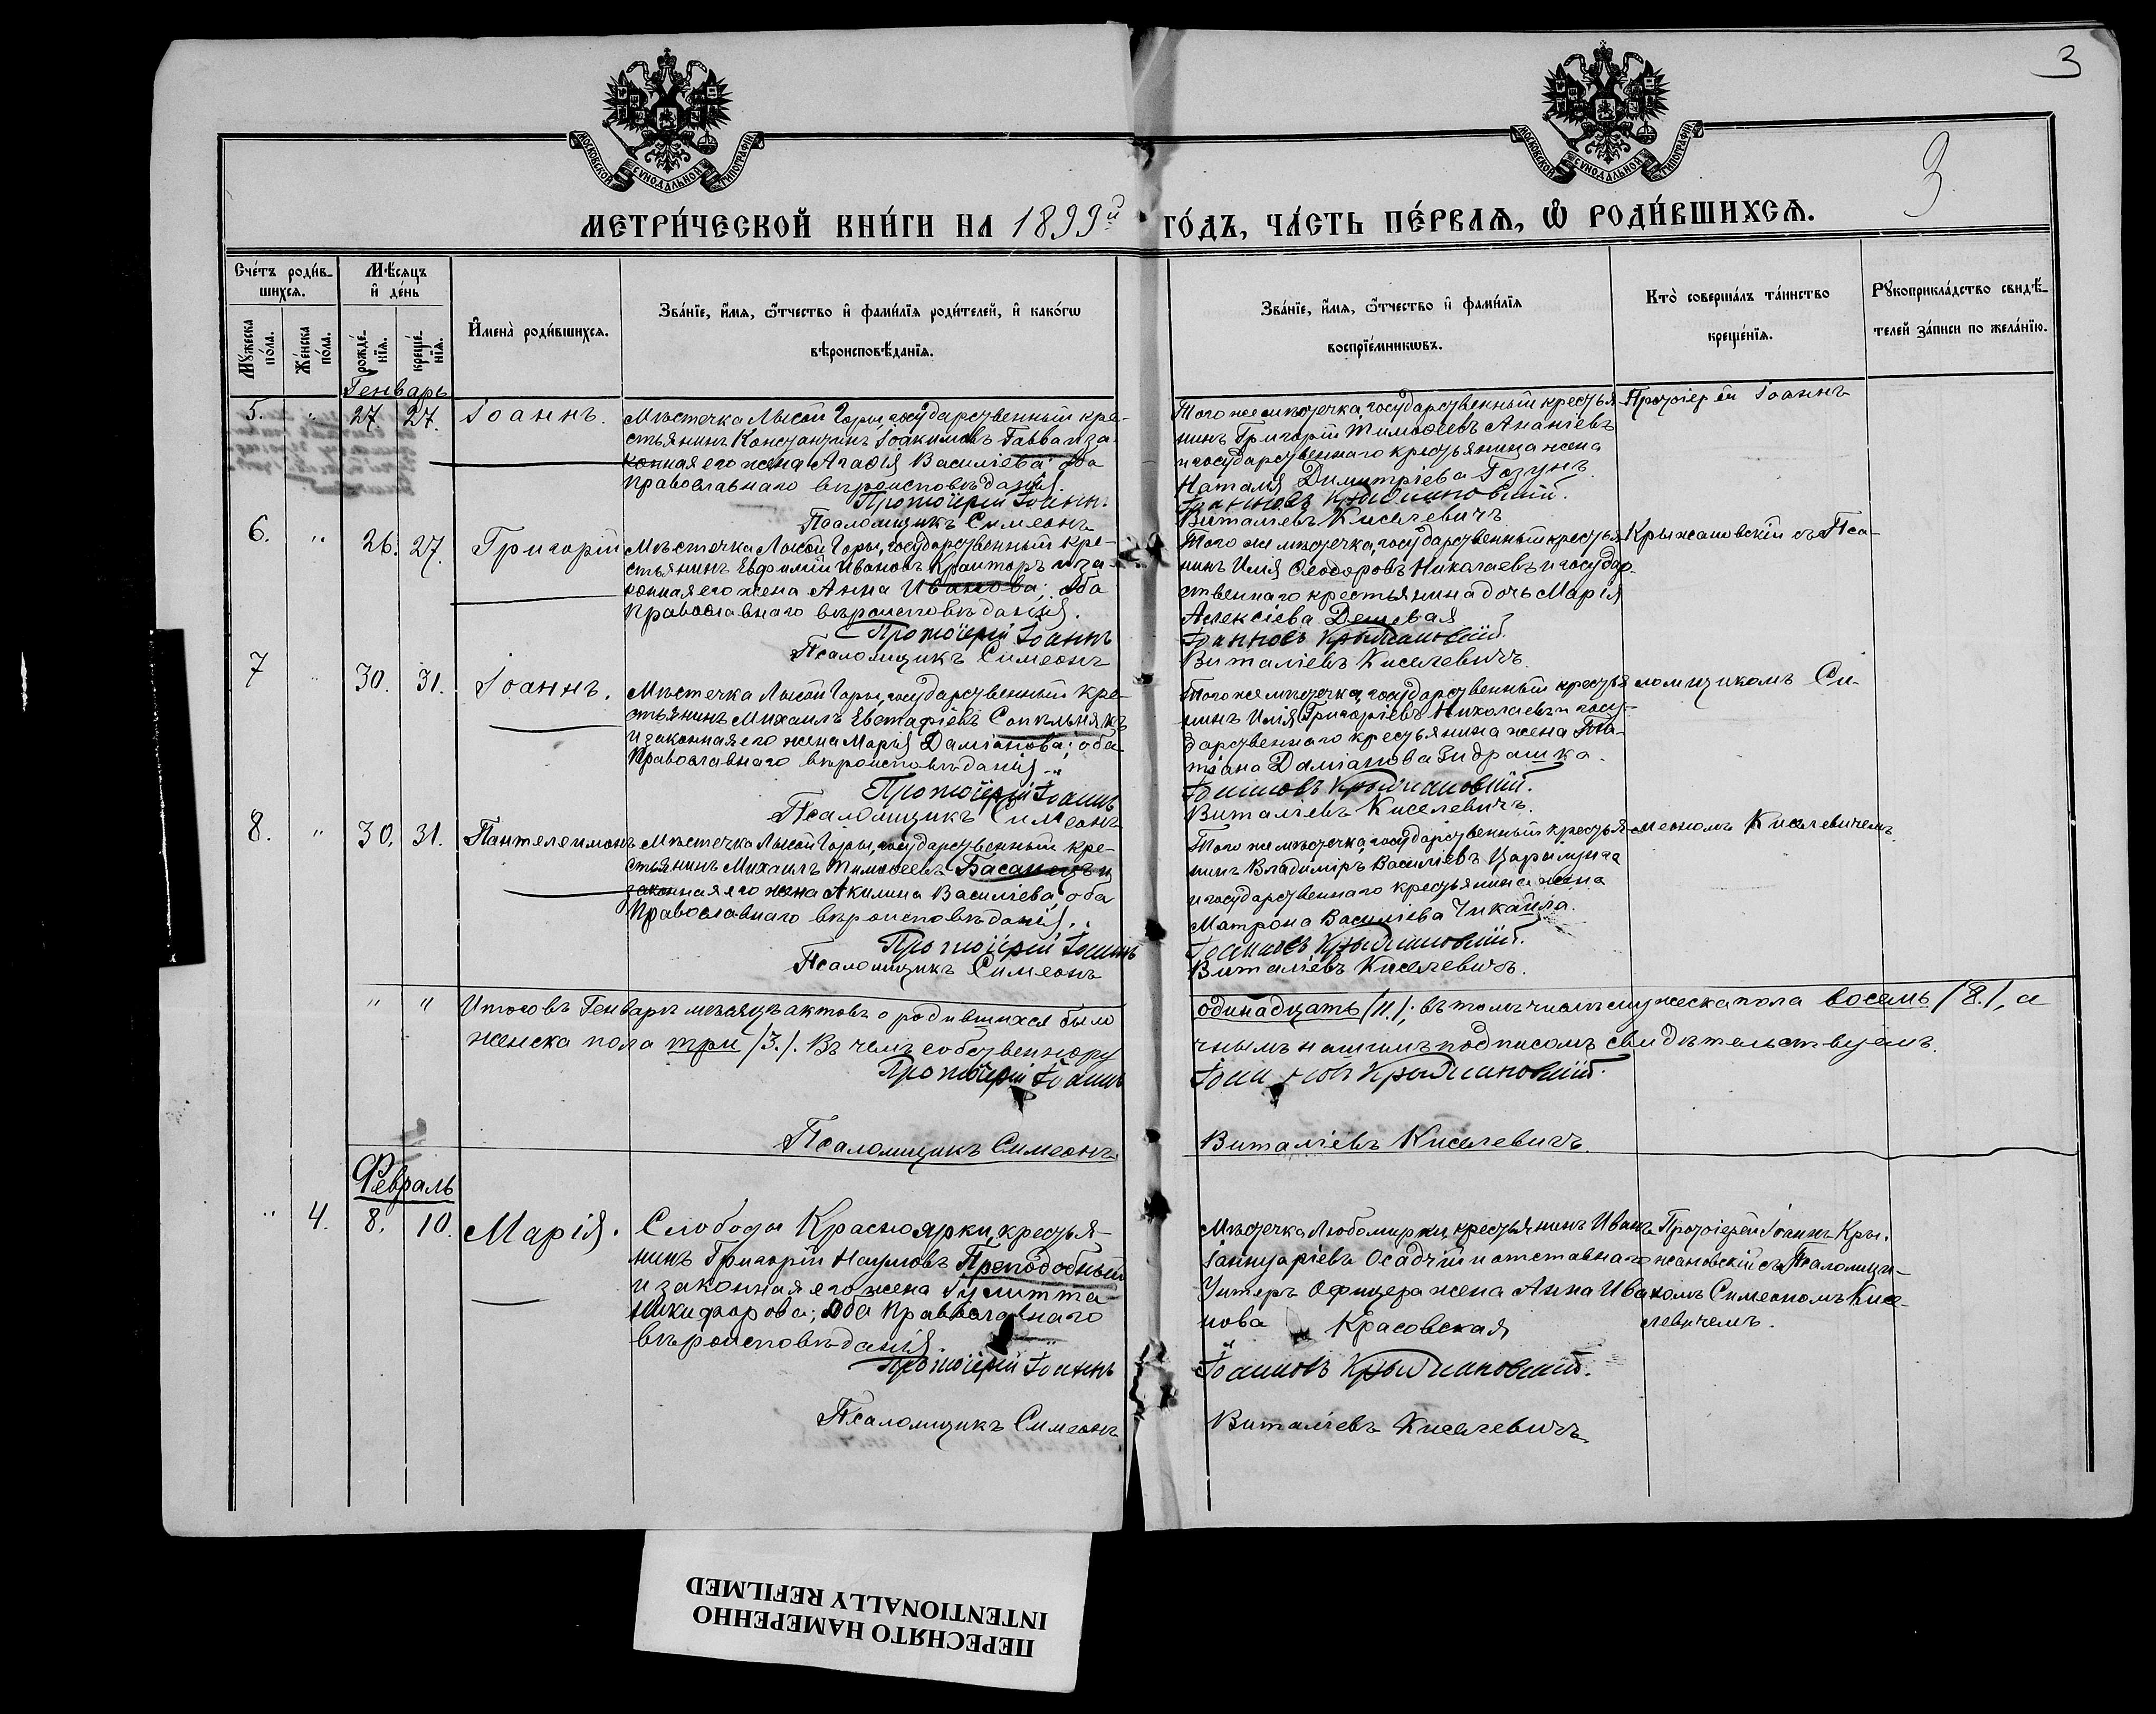 3
МОСКОВСКОЙ СѴНОДАЛЬНОЙ ТИПОГРАФІИ
МОСКОВСКОЙ СѴНОДАЛЬНОЙ ТИПОГРАФІИ
3
МЕТРИ́ЧЕСКОЙ КНИ́ГИ НА 1899й ГО́ДЪ, ЧА́СТЬ ПЕ́РВАѦ, Ѡ РОДИ́ВШИХСѦ.
Сче́тъ роди́в-
шихсѧ.
Мꙋжеска по́ла.
Же́нска по́ла.
Мѣ́сѧцъ и де́нь
рожде́-нїѧ.
креще́-нїѧ.
И҆мена̀ роди́вшихсѧ.
Зва́нїе, и҆́мѧ, ѻ҆́тчество и҆ фами́лїѧ роди́телей, и҆ како́гѡ
вѣроисповѣ́данїѧ.
Зва́нїе, и҆́мѧ, ѻ҆́тчество и҆ фами́лїѧ
воспрїе́мникѡвъ.
Кто̀ соверша́лъ та́инство
креще́нїѧ.
Рꙋкоприкла́дство свидѣ́-
телей за́писи по жела́нїю.
Генварь
5. " 27. 27. Іоаннъ.
Мѣстечка Лысой Горы, государственный кре-
стьянинъ Константинъ Іоакимовъ Гавва и за-
конная его жена Агафія Василіева; оба
Православнаго вѣроисповѣданія.
Протоіерей Іоаннъ
Псаломщикъ Симеонъ
Того же мѣстечка, государственный крестья-
нинъ Григорій Тимофеевъ Ананіевъ
и государственнаго крестьянина жена
Наталія Димитріева Гозунъ.
Іоанновъ Крыжановскій.
Виталіевъ Киселевичъ
Протоіерей Іоаннъ
6. " 26. 27. Григорій
Мѣстечка Лысой Горы, государственный кре-
стьянинъ Евфимій Ивановъ Крамторъ и за-
конная его жена Анна Иванова; оба
Православнаго вѣроисповѣданія.
Протоіерей Іоаннъ
Псаломщикъ Симеонъ
Того же мѣстечка, государственный крестья-
нинъ Илія Ѳеодоровъ Николаевъ и государ-
ственнаго крестьянина дочь Марія
Алексіева Дешевая
Іоанновъ Крыжановскій.
Виталіевъ Киселевичъ.
Крыжановскій съ Пса-
7 " 30. 31. Іоаннъ.
Мѣстечка Лысой Горы, государственный кре-
стьянинъ Михаилъ Евстафіевъ Сопѣльнякъ
и законная его жена Марія Даміанова; оба
Православнаго вѣроисповѣданія.
Протоіерей Іоаннъ
Псаломщикъ Симеонъ
Того же мѣстечка, государственный крестья-
нинъ Илія Григоріевъ Николаевъ и госу-
дарственнаго крестьянина жена Та-
тіана Даміанова Зидрашка.
Іоанновъ Крыжановскій.
Виталіевъ Киселевичъ.
ломщикомъ Си-
8. " 30. 31. Пантелеимонъ
Мѣстечка Лысой Горы, государственный кре-
стьянинъ Михаилъ Тимофеевъ Басанецъ и
законная его жена Акилина Василіева; оба
Православнаго вѣроисповѣданія.
Протоіерей Іоаннъ
Псаломщикъ Симеонъ
Того же мѣстечка, государственный крестья-
нинъ Владиміръ Василіевъ
и государственнаго крестьянина жена
Матрона Василіева Чикаила.
Іоанновъ Крыжановскій.
Виталіевъ Киселевичъ.
меономъ Киселевичемъ
" " Итого въ Генварѣ мѣсяцѣ актовъ о родившихся было одинадцать /11./; въ томъ числѣ мужеска пола восемь /8./, а
женска пола три /3./. Въ чемъ собственнору чнымъ нашимъ подписомъ свидѣтельствуемъ.
Протоіерей Іоаннъ Іоанновъ Крыжановскій.
Псаломщикъ Симеонъ Виталіевъ Киселевичъ.
Февраль
" 4. 8. 10. Марія.
Слободы Красноярки, крестья-
нинъ Григорій Наумовъ Преподобный
и законная его жена Іулитта
Никифорова; оба Православнаго
вѣроисповѣданія.
Протоіерей Іоаннъ
Псаломщикъ Симеонъ
Мѣстечка Любомирки, крестьянинъ Иванъ
Іаннуаріевъ Осадчій и отставнаго
Унтеръ Офицера жена Анна Ива-
нова Красовская
Іоанновъ Крыжановскій.
Виталіевъ Киселевичъ.
Протоіерей Іоаннъ Кры-
жановскій съ Псаломщи-
комъ Симеономъ Кисе-
левичемъ.
ПЕРЕСНЯТО НАМЕРЕННО
INTENTIONALLY REFILMED